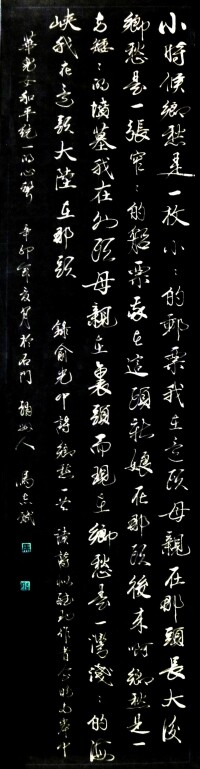 小時候鄉愁是一枚小々的郵票我在這頭母親在那頭長大後
鄉愁是一張窄々的船票我在這頭新娘在那頭後來啊鄉愁是一
方矮々的墳墓我在外頭母親在裏頭而現在鄉愁是一灣淺々的海
峽我在這頭大陸在那頭 錄俞光中詩鄉愁一首 讀詩似聽到作者 中
華 和平統一的心聲 辛卯 月於石門 人 馮 斌